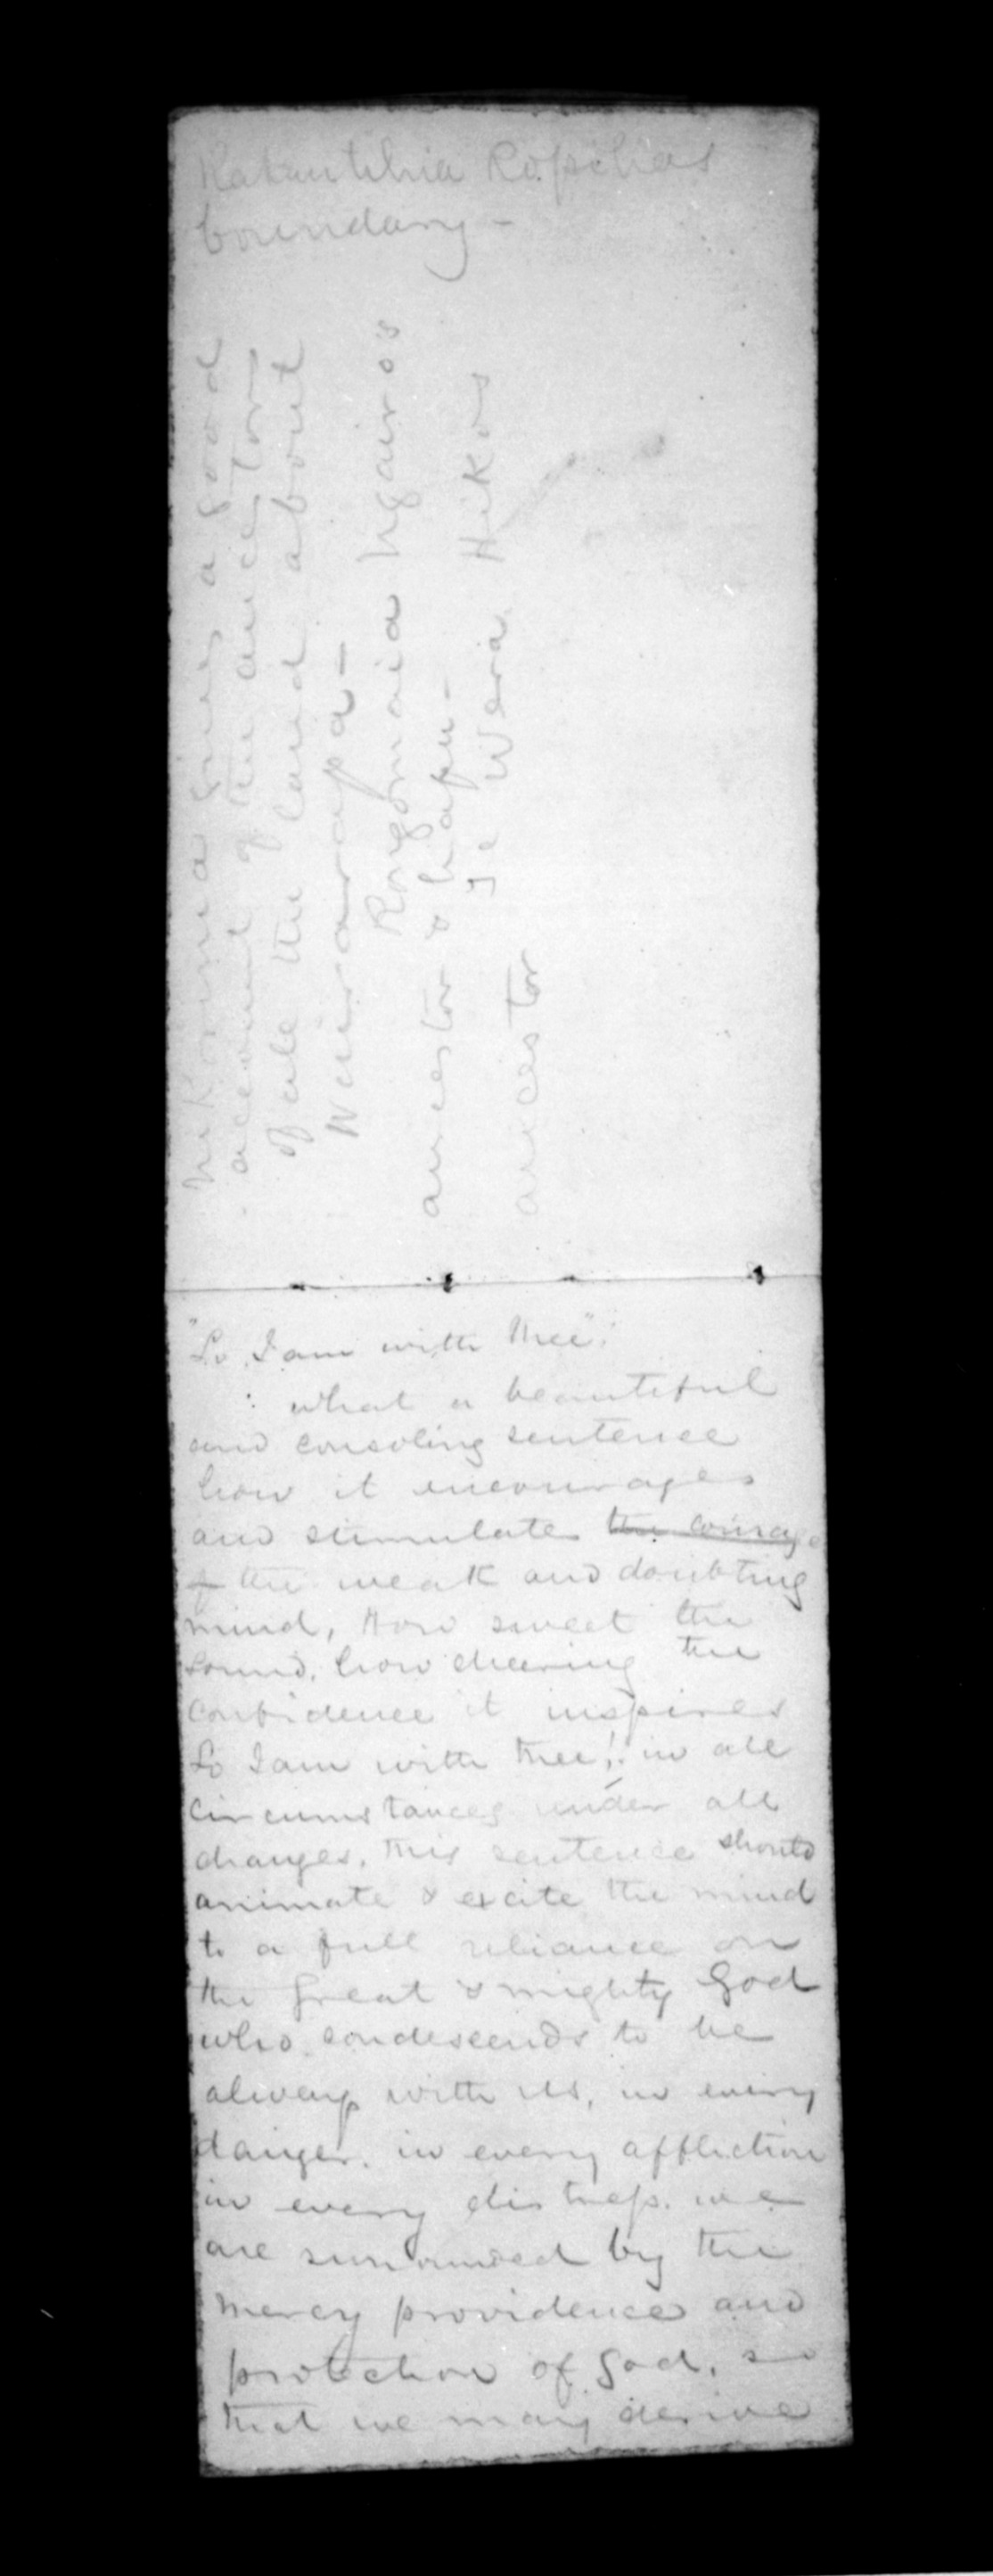 boundary -
gives a good
account of the ancestors
of all the land about
Wairarapa -
Rongomaia Ngairo's
ancestor & hapu -
Te Wera Hikos
ancestor
"Lo, I am with thee":
: what a beautiful
and consoling sentence
how it encourages
and stimulates the courage
of the weak and doubting
mind, How sweet the
sound, how cheering the
confidence it inspires
Lo I am with thee!. in all
circumstances under all
changes. this sentence should
animate & excite the mind
to a full reliance on
the great & mighty God
who condescends to be
always with us, in every
danger. in every affliction
in every distress. we
are surrounded by the
mercy providence and
protection of God, so
that we may derive